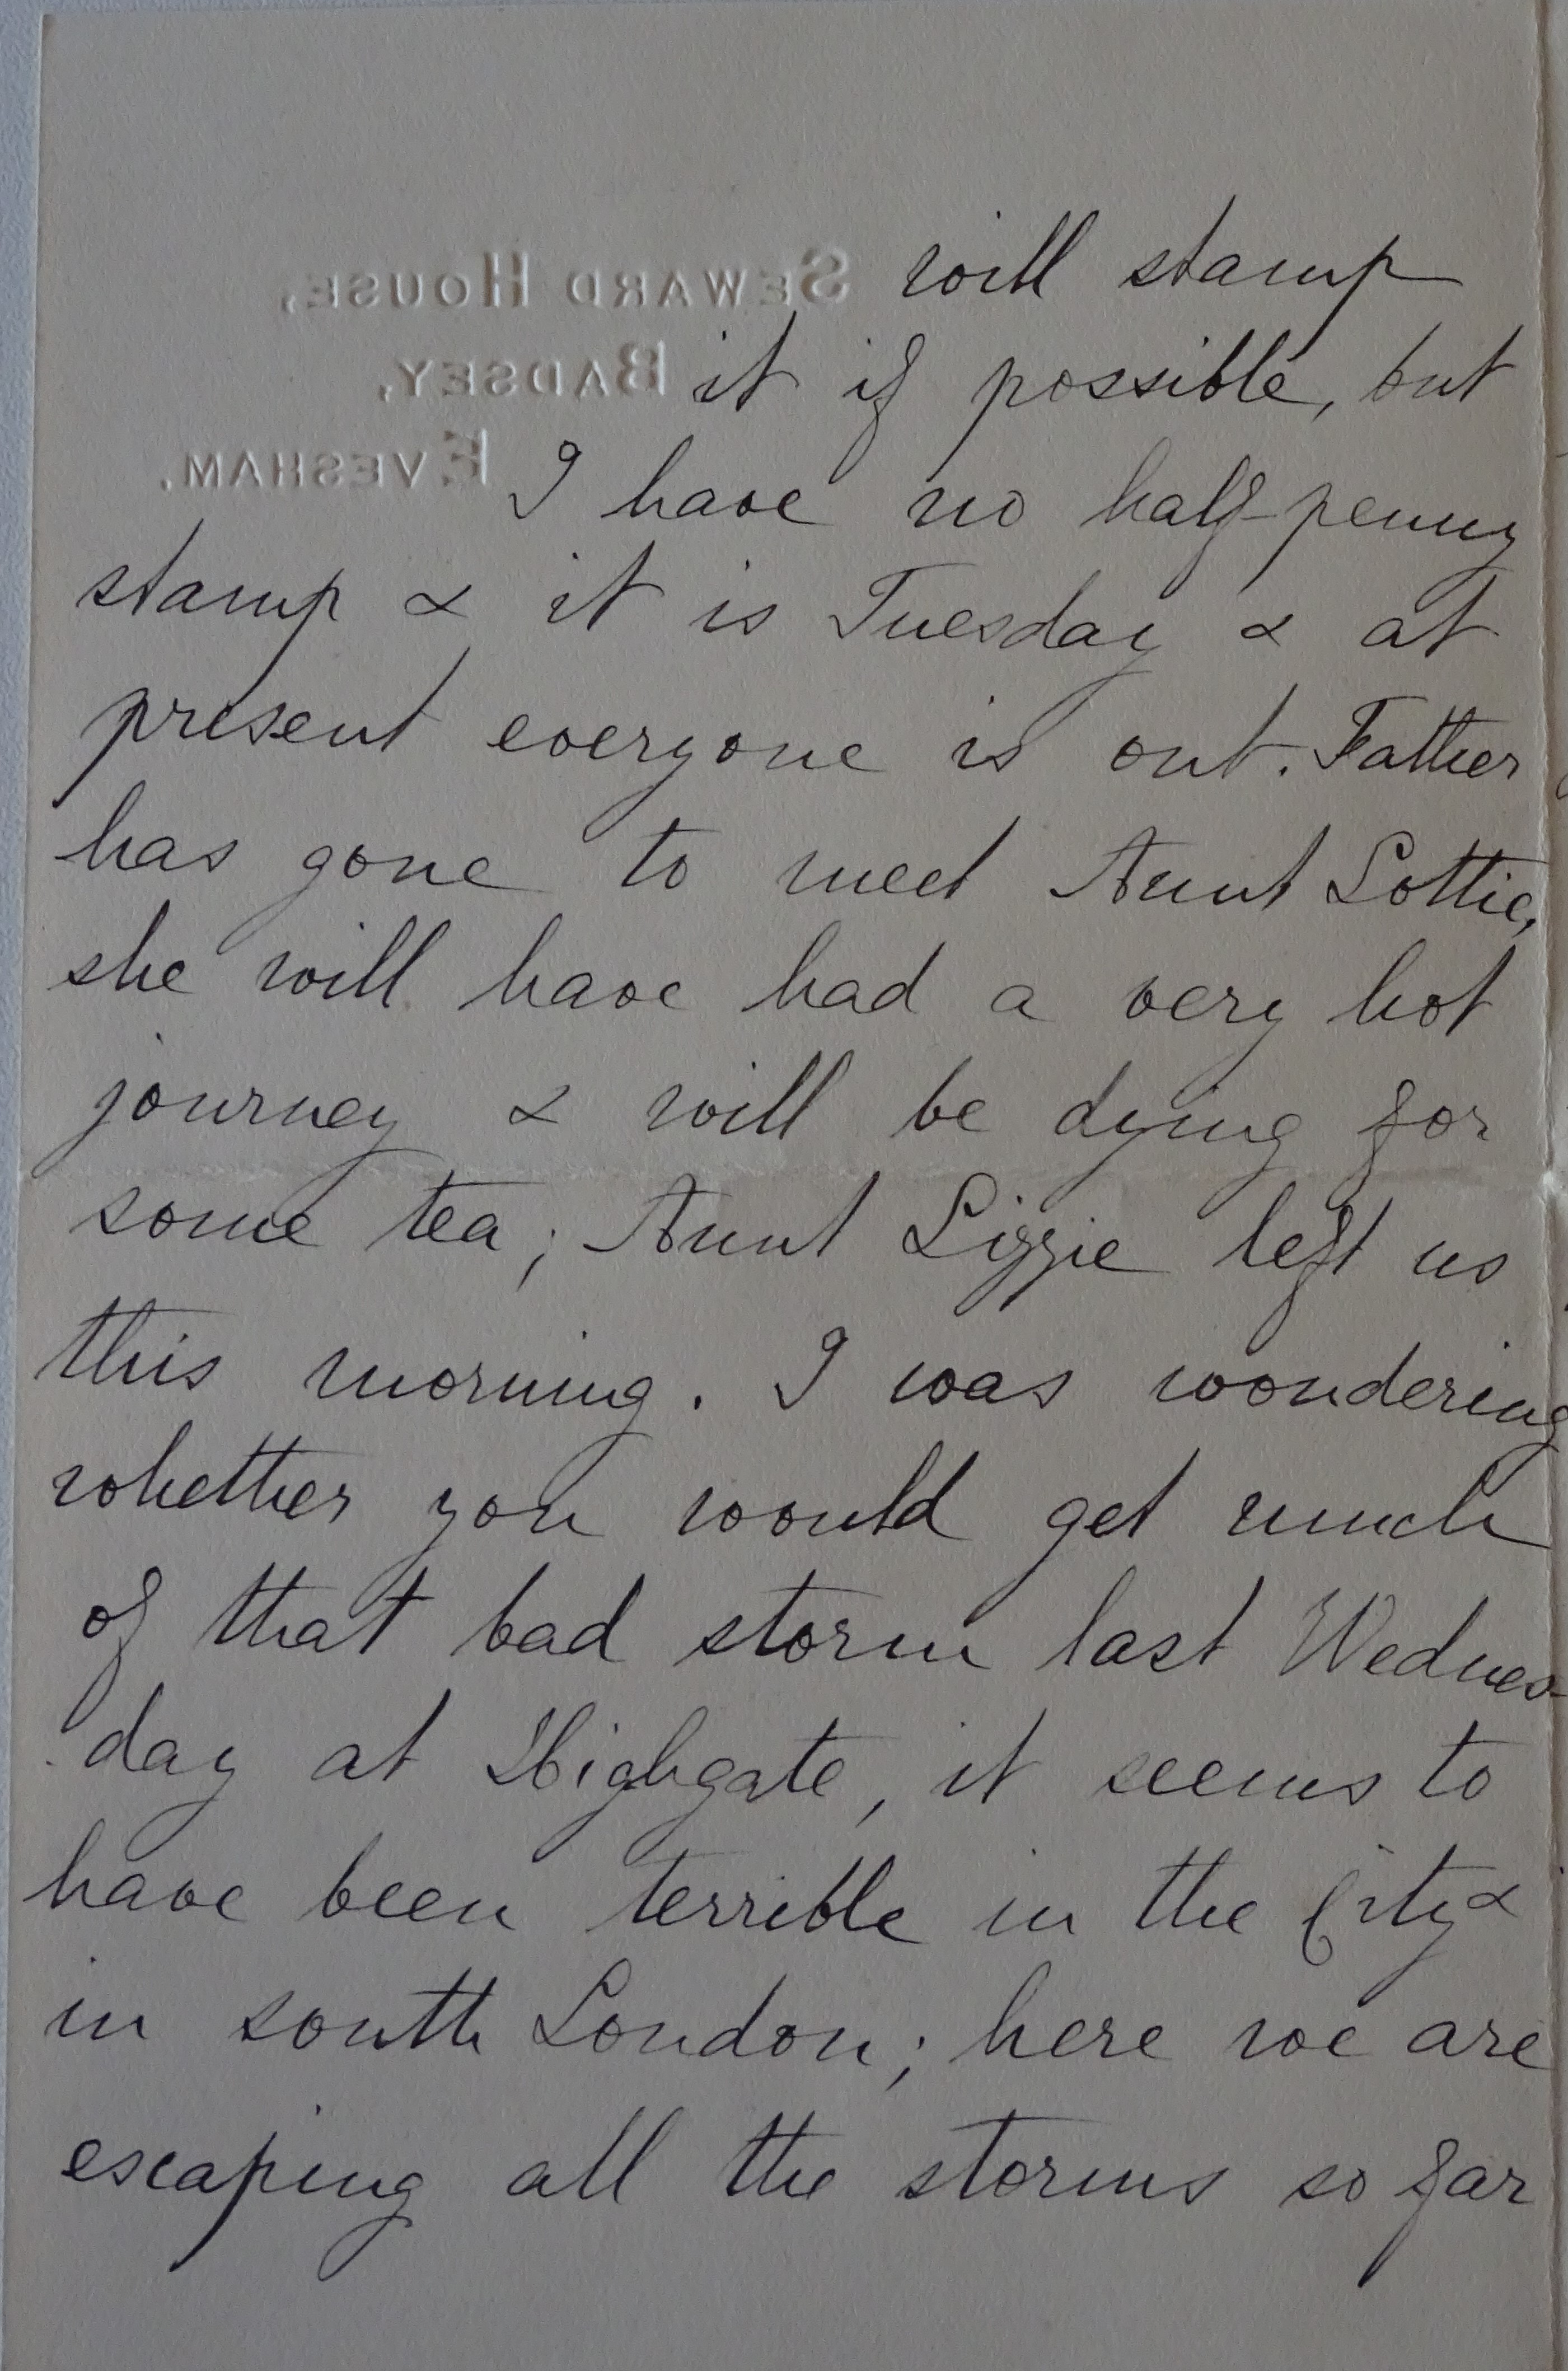 SEWARD HOUSE, will stamp
BADSEY, it if possible, but
EVESHAM. I have no half-penny
stamp & it is Tuesday & at
present everyone is out. Father
has gone to meet Aunt Lottie,
she will have had a very hot
journey & will be dying for
some tea; Aunt Lizzie left us
this morning. I was wondering
whether you would get much
of that bad storm last Wednes-
day at Highgate, it seems to
have been terrible in the City &
in south London; here we are
escaping all the storms so far